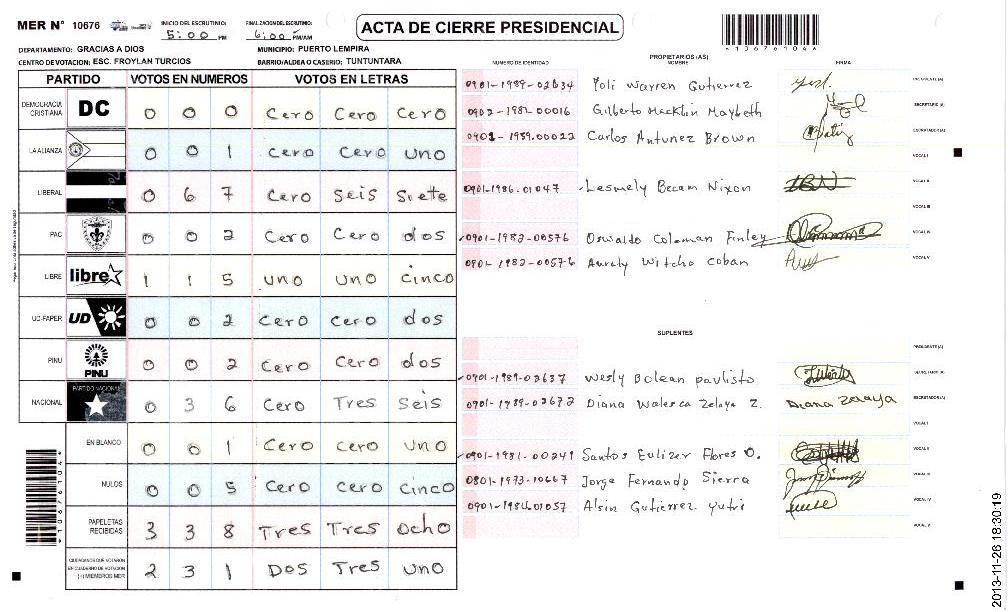 MER N° 10676
INICIO DEL ESCRUTINIO:
5:00 PM
FINALIZACION DEL ESCRUTINIO:
6:00 PM/AM
ACTA DE CIERRE PRESIDENCIAL
*10676104*
DEPARTAMENTO: GRACIAS A DIOS
MUNICIPIO: PUERTO LEMPIRA
CENTRO DE VOTACION: ESC. FROYLAN TURCIOS
BARRIO/ALDEA O CASERIO: TUNTUNTARA
PARTIDO VOTOS EN NUMEROS VOTOS EN LETRAS
DEMOCRACIA CRISTIANA DC 0 0 0 Cero Cero Cero
LA ALIANZA 0 0 1 Cero Cero uno
LIBERAL 0 6 7 Cero Seis Siete
PAC 0 0 2 Cero Cero dos
LIBRE libre 1 1 5 uno uno cinco
UD-FAPER UD 0 0 2 Cero Cero dos
PINU PINU 0 0 2 Cero Cero dos
NACIONAL PARTIDO NACIONAL 0 3 6 Cero Tres Seis
EN BLANCO 0 0 1 Cero Cero uno
NULOS 0 0 5 Cero Cero Cinco
PAPELETAS RECIBIDAS 3 3 8 Tres Tres ocho
CIUDADANOS QUE VOTARON EN CUADERNO DE VOTACION (+) MIEMBROS MER 2 3 1 Dos Tres uno
PROPIETARIOS (AS)
NUMERO DE IDENTIDAD NOMBRE FIRMA
0901-1989-02634 Yoli Warren Gutierrez PRESIDENTE (A)
0902-1982-00016 Gilberto Macklin Maybeth SECRETARIO (A)
0901-1959-00022 Carlos Antunez Brown ESCRUTADOR (A)
VOCAL I
0901-1986-01047 Lesmely Becam Nixon VOCAL II
VOCAL III
0901-1982-00576 Oswaldo Coleman Finley VOCAL IV
0801-1982-00576 Aurely Witcho Coban VOCAL V
SUPLENTES
PRESIDENTE (A)
0901-1989-02637 Wesly Bolean paulisto SECRETARIO (A)
0901-1989-02672 Diana Walesca Zelaya Z. Diana Zelaya ESCRUTADOR (A)
VOCAL I
0901-1981-00241 Santos Eulizer Flores O. VOCAL II
0801-1973-10667 Jorge Fernando Sierra VOCAL III
0901-1986-01057 Alsin Gutierrez yutri VOCAL IV
VOCAL V
2013-11-26 18:30:19